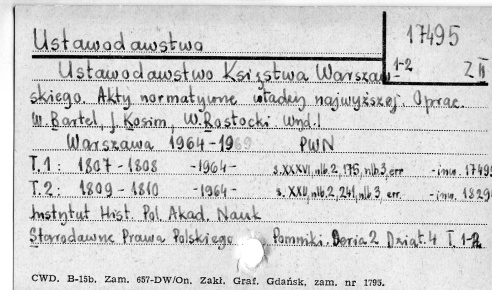 Ustawodawstwo
17495
1-2
Z II
Ustawodawstwo Księstwa Warszaw-
skiego. Akty normatywne władzy najwyższej. Oprac.
W. Bartel, J. Kosim, W. Rostocki. Wyd. 1
Warszawa 1964-1969 PWN
T. 1: 1807-1808 -1964- s. XXXVI, nlb. 2, 175, nlb. 3, err -inw. 17495
T. 2: 1809-1810 -1964- s. XXII, nlb. 2, 241, nlb. 3, err. -inw. 1829
Instytut Hist. Pol. Akad. Nauk
Starodawne Prawa Polskiego Pomniki. Seria 2 Dział. 4 T. 1-2
CWD. B-15b. Zam. 657-DW/On. Zakł. Graf. Gdańsk, zam. nr 1795.